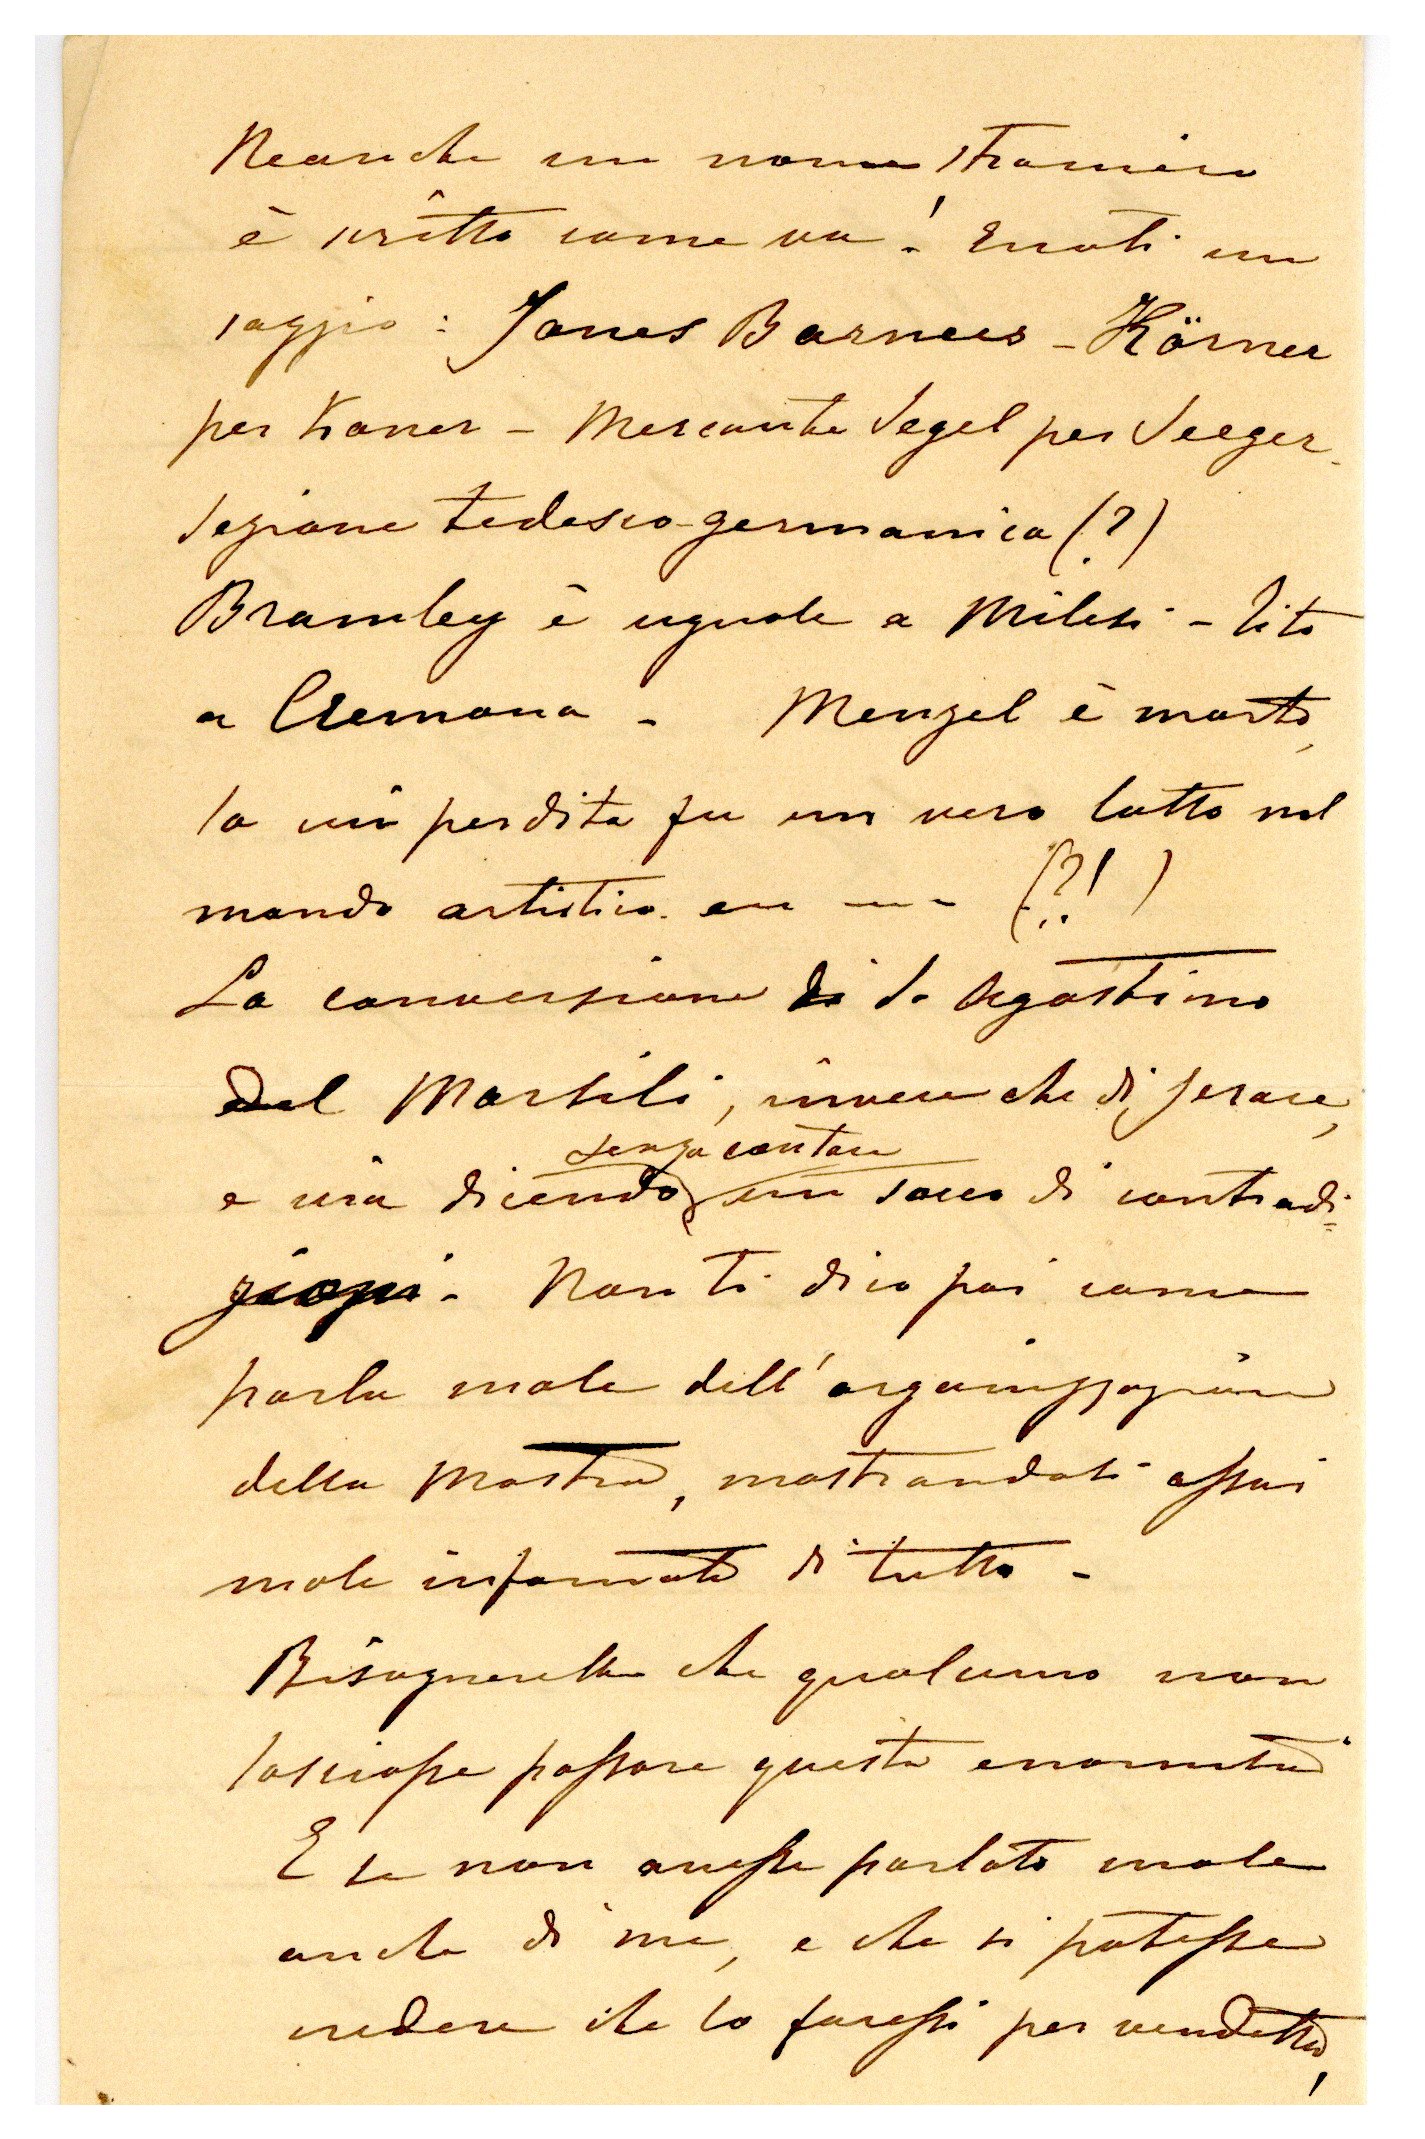 Neanche un nome straniero
è scritto come va! Eccoti un
saggio: Jones Barnees – Körner
per Kroner – Mercante Segel per Seeger
Sezione tedesco-germanica (?)
Bramley è uguale a Milesi – Tito
a Cremona – Menzel è morto,
la cui perdita fu un vero lutto nel
mondo artistico. ecc --- (?!)
La conversione di S. Agostino
del Marsili, invece che di Serace,
e via dicendo senza contare un sacco di contradi=
zioni. Non ti dico poi come
parla male dell'organizzazione
della Mostra, mostrandosi assai
male informato di tutto –
Bisognerebbe che qualcuno non
lasciasse passare questa enormità
E se non avesse parlato male
anche di me, e che si potesse
credere che lo facessi per vendetta,